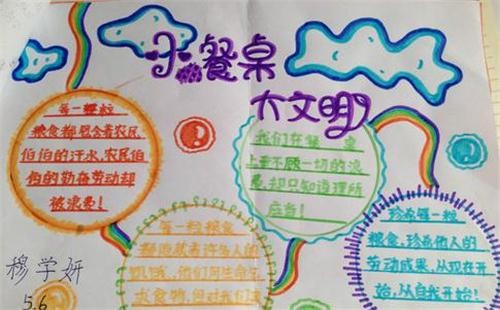 小餐桌
大文明
每一颗粒
粮食都包含着农民
伯伯的汗水,农民伯
伯的勤奋劳动却
被浪费!
我们在餐桌
上并不顾一切的浪
费,却只知道理所
应当!
每一粒粮食
着许多人的
他们用生命
求食物,但对我们
珍惜每一粒
粮食,珍惜他人的
劳动成果,从现在开
始,从自我开始!
穆学妍
5.6